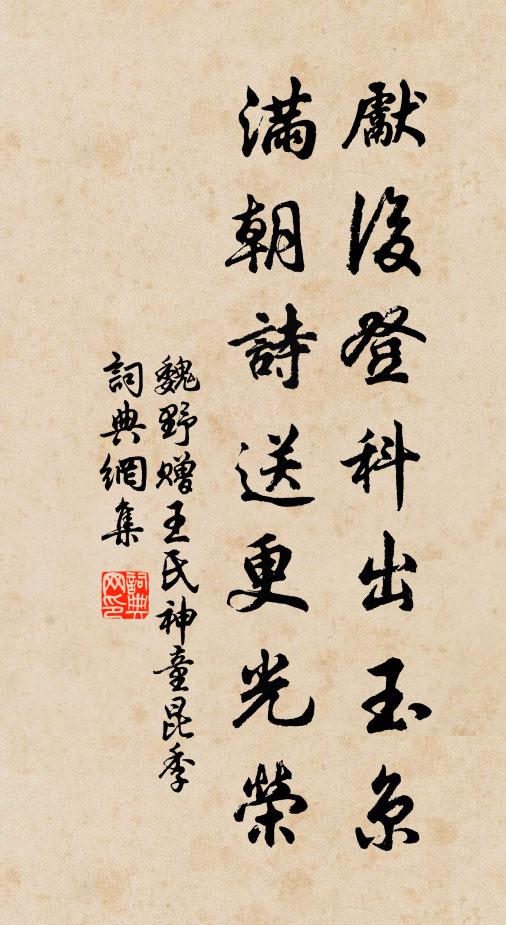 獻後登科出玉京
滿朝詩送更光榮
魏野赠王氏神童昆季
詞典網集
詞典网印